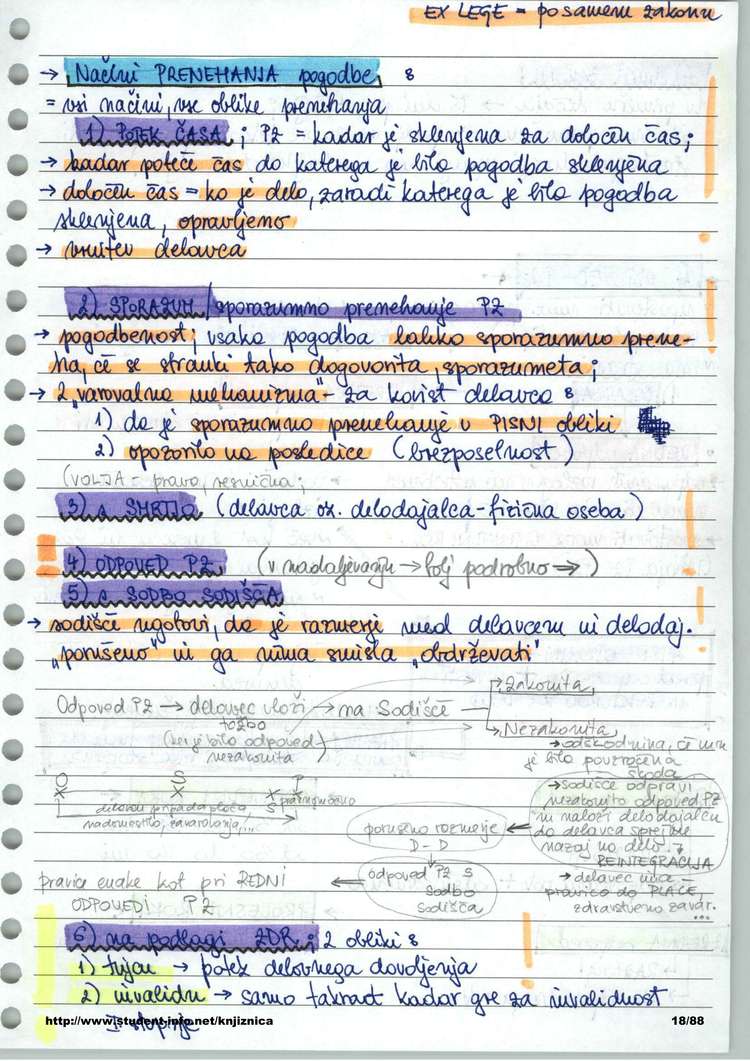 EX LEGE = po samem zakonu
→ Načini PRENEHANJA pogodbe :
= vsi načini, vse oblike prenehanja
1) POTEK ČASA ; PZ = kadar je sklenjena za določen čas ;
→ kadar poteče čas do katerega je bila pogodba sklenjena
→ določen čas = ko je delo, zaradi katerega je bila pogodba
sklenjena, opravljeno
→ vrnitev delavca
2) SPORAZUM / sporazumno prenehanje PZ
→ pogodbenost ; vsaka pogodba lahko sporazumno prene-
ha, če se stranki tako dogovorita, sporazumeta ;
→ 2 "varovalna mehanizma" - za korist delavca :
1) da je sporazumno prenehanje v PISNI obliki
2) opozorilo na posledice (brezposelnost)
(VOLJA = prava, resnična ;
3) s SMRTJO (delavca oz. delodajalca - fizična oseba)
4) ODPOVED PZ (v nadaljevanju → bolj podrobno ⇒)
5) s SODBO SODIŠČA
→ sodišče ugotovi, da je razmerje med delavcem in delodaj.
"porušeno" in ga nima smisla "obdrževati"
Odpoved PZ → delavec vloži → na Sodišče
tožbo
(ker je bila odpoved
nezakonita)
Zakonita
Nezakonita
→ odškodnina, če mu
je bila povzročena
škoda
O S P
pravnomočno
delavcu pripada plača, S
nadomestilo, zavarovanja, ...
→ sodišče odpravi
nezakonito odpoved PZ
in naloži delodajalcu
da delavca sprejme
nazaj na delo.
REINTEGRACIJA
porušeno razmerje
D - D
→ delavec ima
pravico do PLAČE,
zdravstveno zavar.
...
odpoved PZ s
sodbo
sodišča
pravice enake kot pri REDNI
ODPOVEDI PZ
6) na podlagi ZDR ; 2 obliki :
1) tujcu → potek delovnega dovoljenja
2) invalidu → samo takrat kadar gre za invalidnost
I. stopnje
http://www.student-info.net/knjiznica
18/88